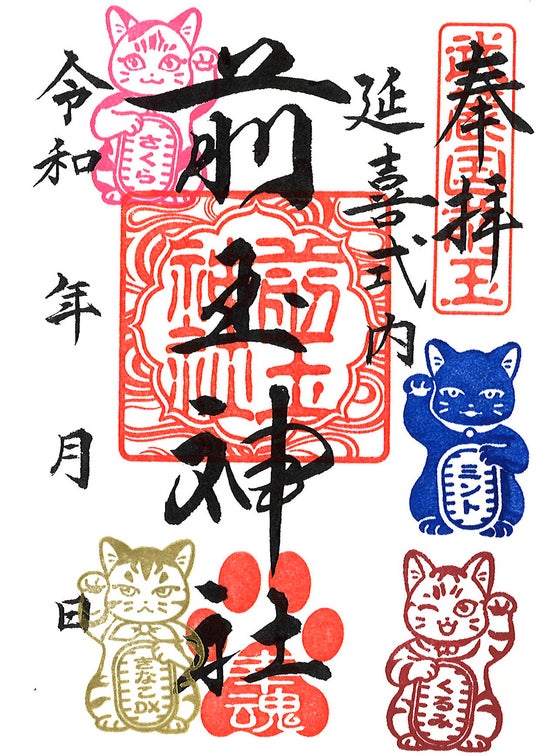 奉拝
武蔵国埼玉
延喜式内
前玉神社
前玉
神社
令和 年 月 日
さくら
ミント
きなこDX
くるみ
幸魂